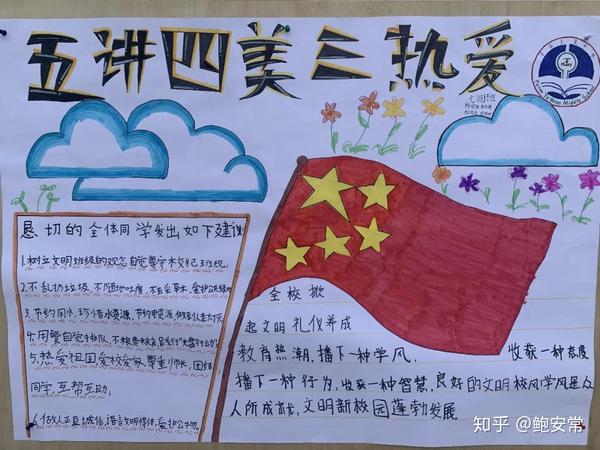 五讲四美三热爱
恳切的全体同学发出如下建议
1.树立文明班级的观念自觉遵守校纪班规.
2.不乱扔垃圾,不随地吐痰,不乱采草木,爱护公共绿地
3.节约用水,珍惜水资源,节约电源,做到人走灯灭
4.用餐自觉排队,不浪费粮食
5.热爱祖国爱校爱家,尊重师长,团结
同学,互帮互助,
6.做人正直诚信,语言文明得体,爱护公物
全校掀
起文明礼仪养成
教育热潮,播下一种学风, 收获一种态度
播下一种行为,收获一种智慧,良好的文明校风学风是众
人所成就,文明新校园蓬勃发展
知乎 @鲍安常